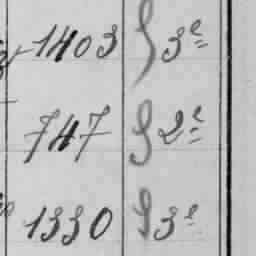 1403 3e
747 2e
1330 3e